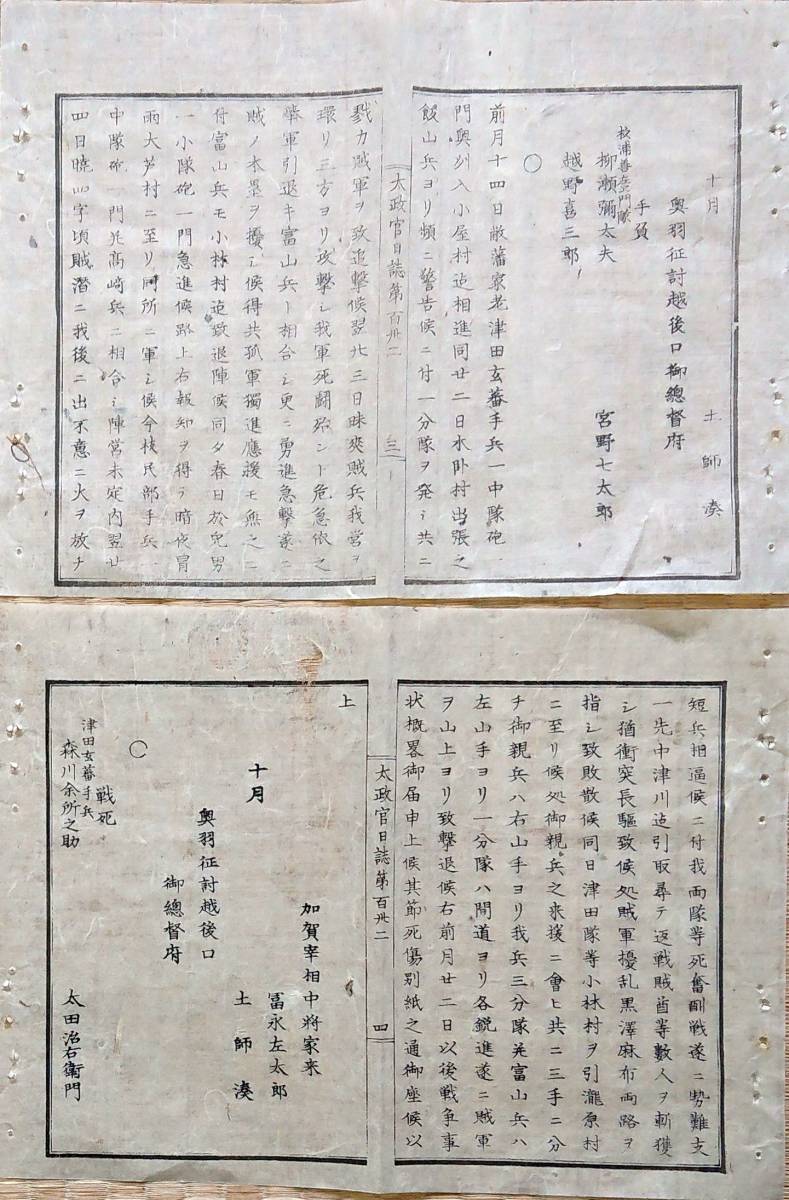 十月
土師湊
奥羽征討越後口御總督府
手負
宮野七太郎
枝浦善左エ門隊
柳瀬彌太夫
越野喜三郎
〇
前月十四日敝藩家老津田玄蕃手兵一中隊砲一
門奥州入小屋村迠相進同廿二日水卧村出張之
飯山兵ヨリ頻ニ警告候ニ付一分隊ヲ発シ共ニ
太政官日誌第百卅二
三
戮力賊軍ヲ致追撃候翌廿三日昧爽賊兵我営ヲ
環リ三方ヨリ攻撃シ我軍死闘殆ント危急依之
藥軍引退キ富山兵ト相合シ更ニ勇進急撃遂ニ
賊ノ本塁ヲ擾シ候得共孤軍獨進應援モ無之ニ
付富山兵モ小林村迠致退陣候同夕春日於兎男
一小隊砲一門急進候路上右報知ヲ得テ暗夜冒
雨大芦村ニ至リ同所ニ軍シ候今枝民部手兵一
中隊砲一門并髙﨑兵ニ相合シ陣営未定内翌廿
四日暁四字頃賊潜ニ我後ニ出不意ニ火ヲ放チ
短兵相逼候ニ付我両隊等死奮酣戦遂ニ勢難支
一先中津川迠引取尋テ返戦賊酋等數人ヲ斬獲
シ猶衝突長驅致候処賊軍擾乱黒澤麻布両路ヲ
指シ致敗散候同日津田隊等小林村ヲ引瀧原村
ニ至リ候処御親兵之来援ニ會ヒ共ニ三手ニ分
チ御親兵ハ右山手ヨリ我兵三分隊并富山兵ハ
左山手ヨリ一分隊ハ間道ヨリ各鋭進遂ニ賊軍
ヲ山上ヨリ致撃退候右前月廿二日以後戦争事
状概畧御届申上候其節死傷別紙之通御座候以
太政官日誌第百卅二
四
上
加賀宰相中將家来
冨永左太郎
十月
土師湊
奥羽征討越後口
御總督府
〇
戦死
津田玄蕃手兵
森川余所之助
太田治右衛門